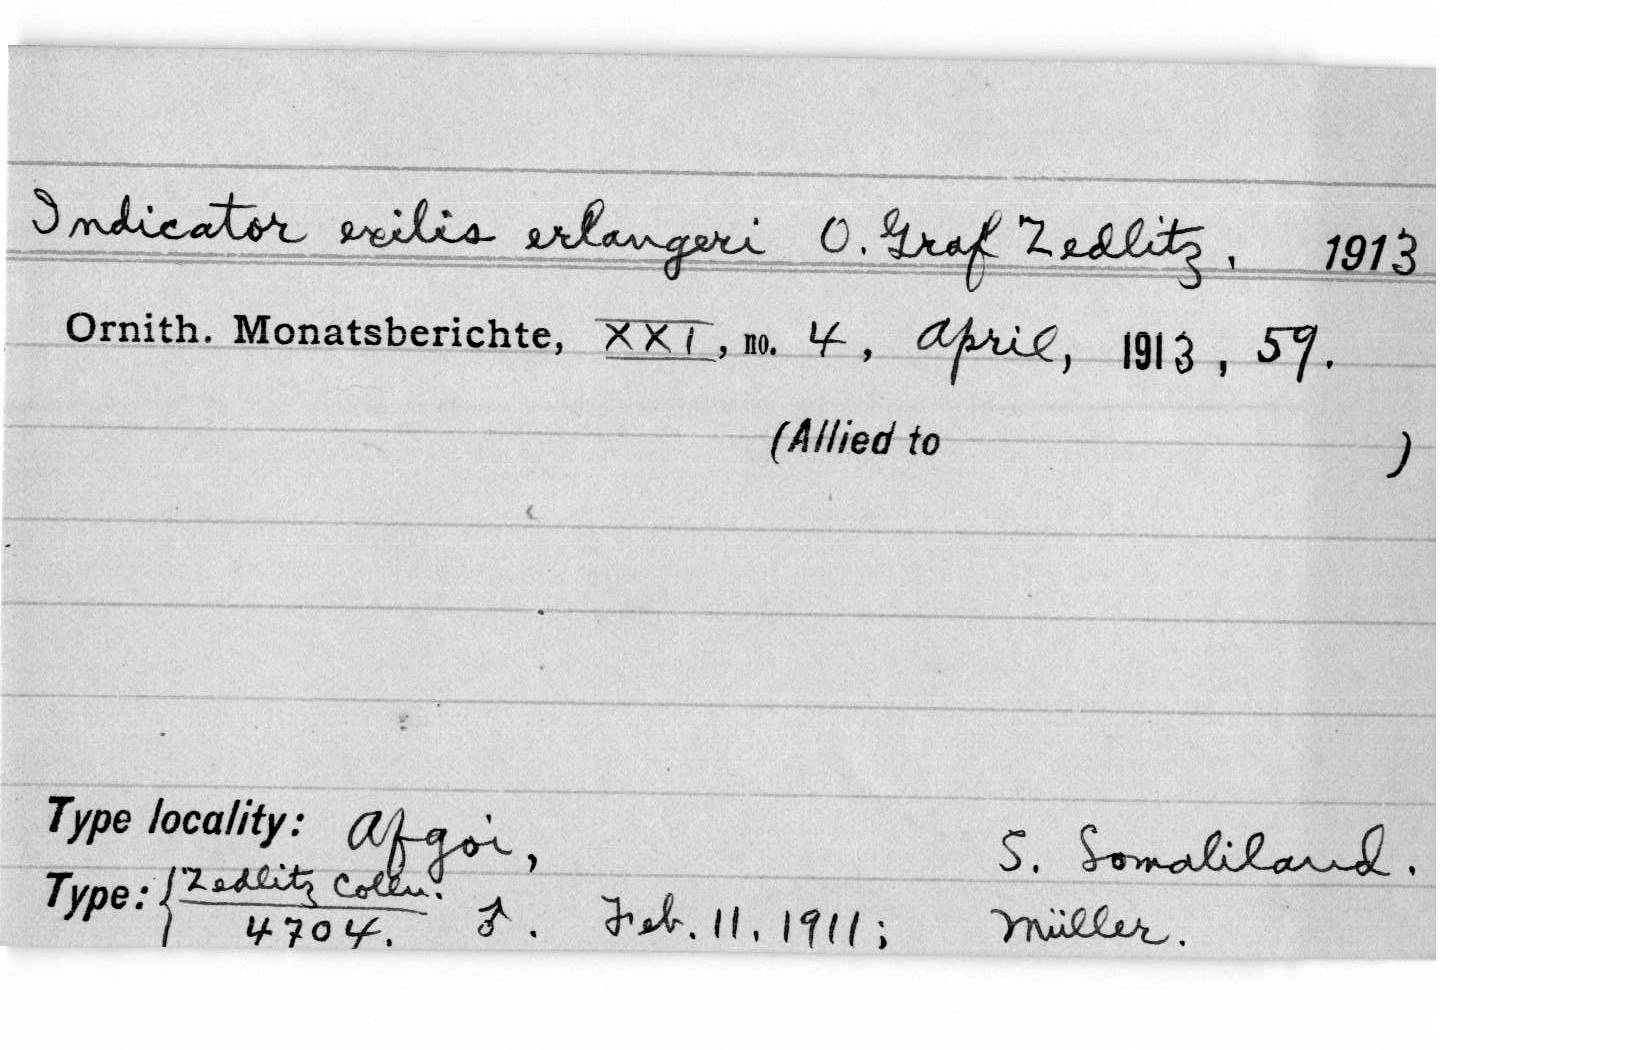 Indicator exilis erlangeri O. Graf Zedlitz, 1913
Ornith. Monatsberichte, XXI, no. 4, April, 1913, 59.
(Allied to )
Type locality: Afgoi, S. Somaliland.
Type: { Zedlitz Colln.
4704. ♂. Feb. 11, 1911; Müller.